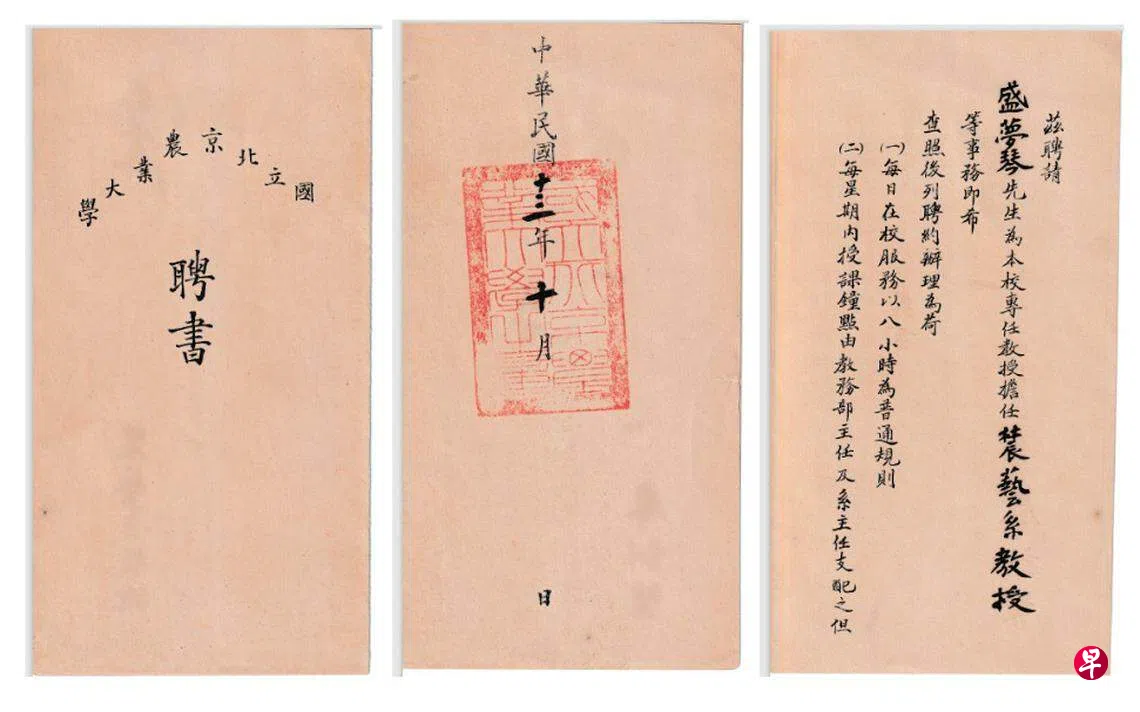 國立北京農業大學
聘書
中華民國十三年十月　日
茲聘請
盛夢琴先生為本校專任教授擔任辳藝系教授
等事務即希
查照後列聘約辦理為荷
(一)每日在校服務以八小時為普通規則
(二)每星期內授課鐘點由教務部主任及系主任支配之但
早